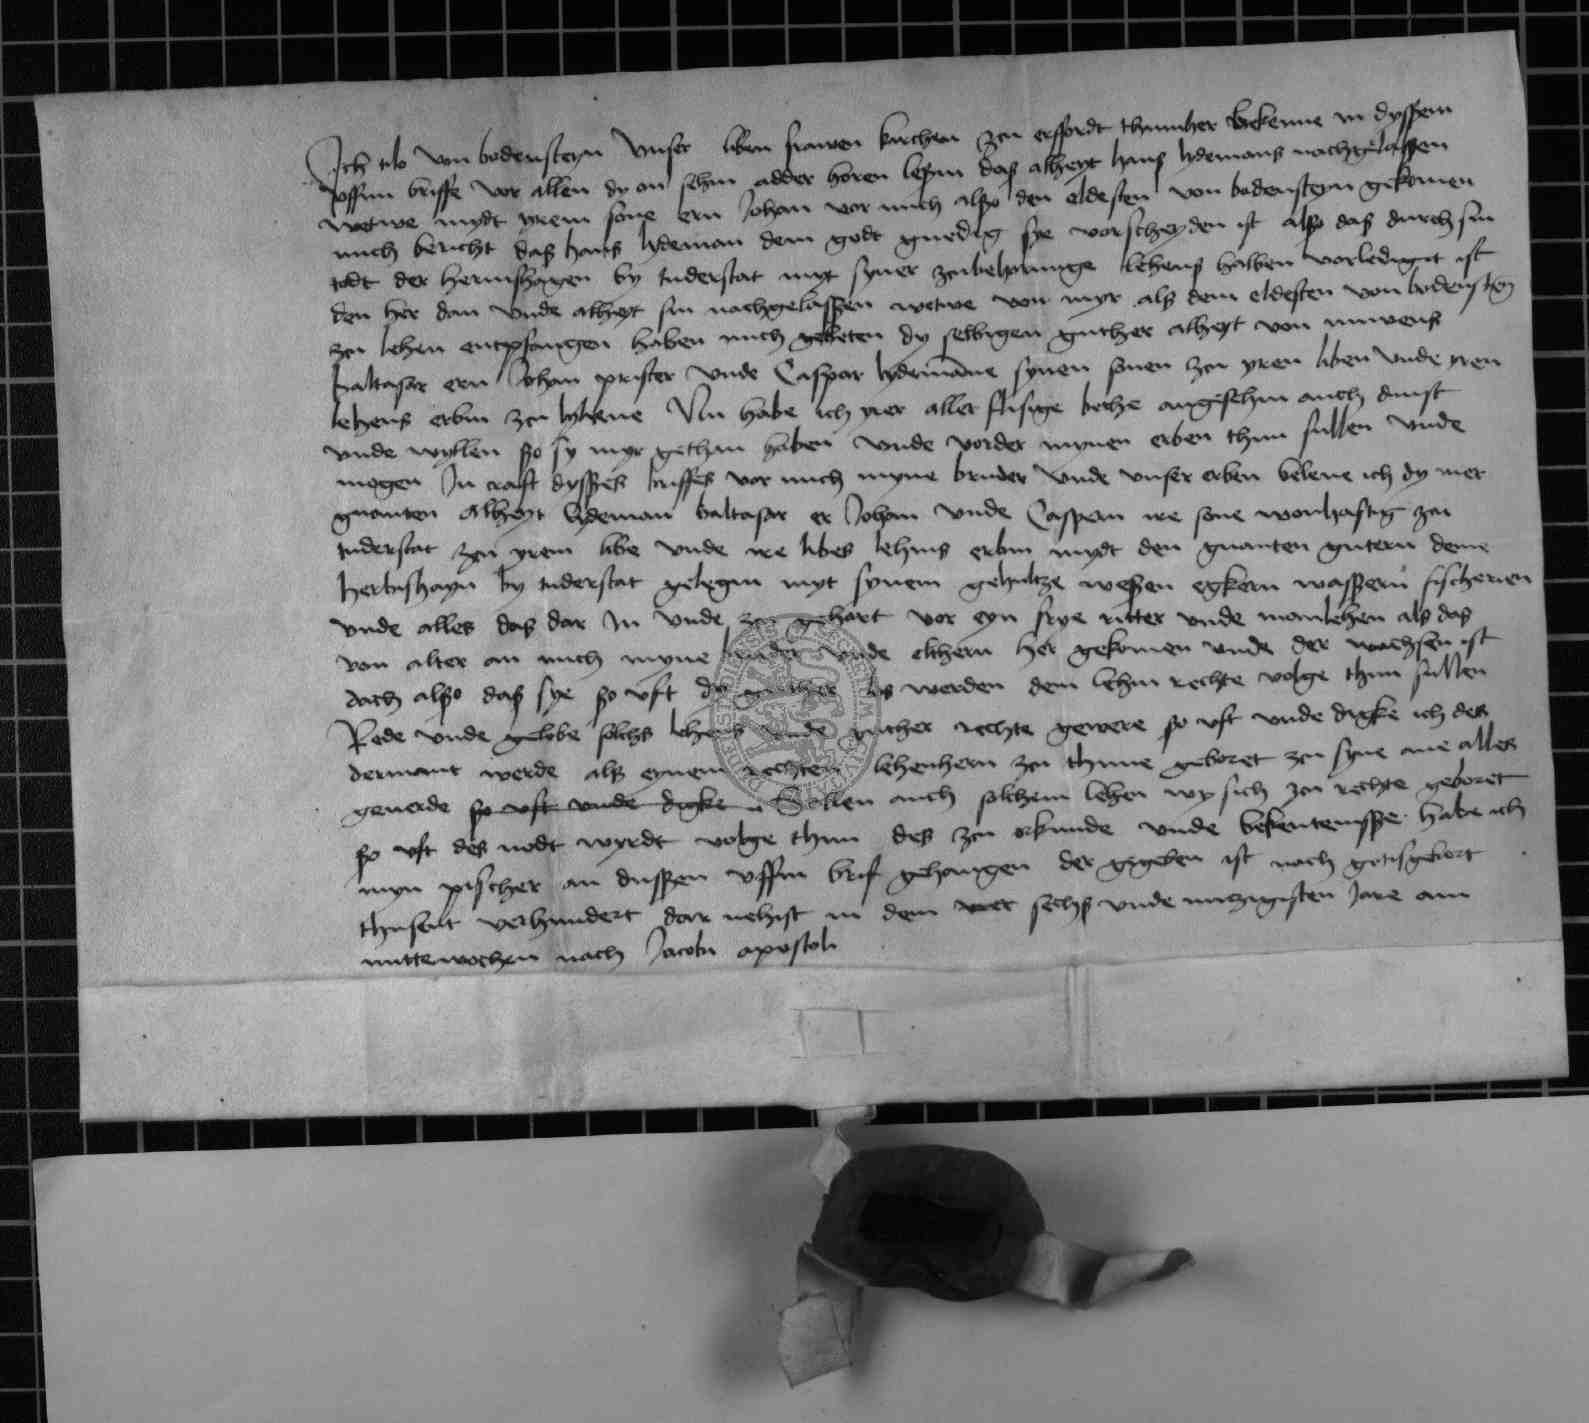 Ich tilo von bodensteyn Unser liben frawen kirchen zcu erffordt thumher bekenne in dyssem
offinn briffe vor allen dy on sehin adder horen lesin das alheyt hans lydemans nachgelassen
wetwe mydt yrem sone ern Johan vor mich also den eldesten von bodensteyn gekomen
mich bericht das hans lydeman dem godt gnedig sye vorscheyden ist also das durch sin
todt der herwishagen by tuderstat myt syner zcubehorunge lehens halben vorledigit ist
den her dan unde alheyt sin nachgelassen wetwe von myr als dem eldesten von bodensteyn
zcu lehen entpfangen haben mich gebeten dy selbigen guther alheyt von nuwens
baltasar ern Johan prister unde Caspar lydemane synen sonen zcu yren liben unde yren
lehens erbin zcu lyhene Nu habe ich yrer aller flisige bethe angesehin auch dinst
unde wyllen so sy myr gethan haben unde vorder mynen erben thun sullen unde
mogen In craft dysses briffes vor mich myne bruder unde unser erben belene ich dy iner
gnanten Alheyt lydeman baltasar er Johan unde Caspern ire sone wonhaftig zcu
tuderstat zcu yrem libe unde ire libes lehins erbin mydt den gnanten gutern deme
herwishayn by tuderstat gelegin myt synem gehultze wesen egkern wassern fischerien
unde alles das dar In unde zcu gehort vor eyn frye ritter unde manlehen als das
von alter an mich myne bruder unde elthern her gekomen unde der wachsen ist
dach also das sye so uft dy guther los werden dem lehin rechte volge thun sullen
Rede unde gelobe solchs lehens unde guther rechte gewere so uft unde digke ich des
dermant werde als eynem rechten lehenhern zcu thune geboret zcu syne ane alles
geuerde so uft unde digke Sollen auch solchem lehen wy sich zcu rechte geboret
so uft des nodt wyrdt volge thun des zcu orkunde unde bekentenisse habe ich
myn pischer an dussen uffin brif gehangen der gegeben ist nach gotisgebort
thusent verhundert dar nehist in dem sechs unde nuzigisten Jare am
mittewochen nach Jacobi apostoli